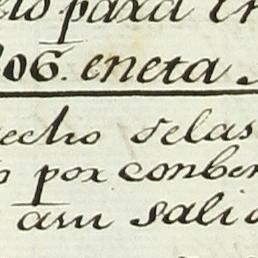 para
806. eneta
echo delas
por conben
asu sali